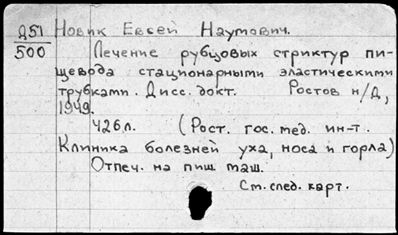 Д51 Новик Евсей Наумович.
500 Лечение рубцовых стриктур пи-
щевода стационарными эластическими
трубками. Дисс. докт. Ростов н/Д,
1949.
426л. (Рост. гос. мед. ин-т.
Клиника болезней уха, носа и горла)
Отпеч. на пиш. маш.
См. след. карт.